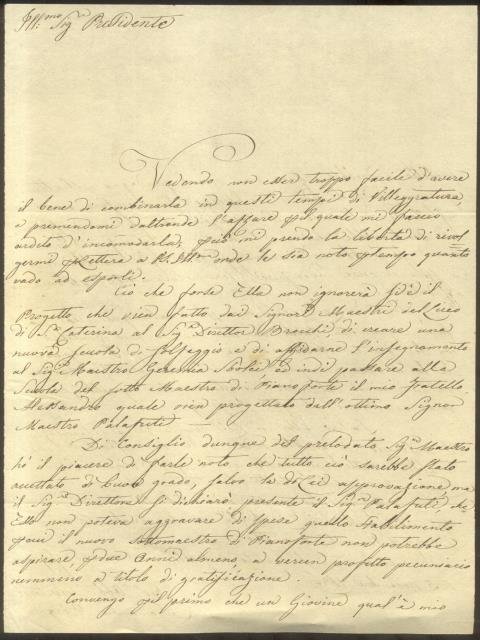 Ill:mo Sig.r Presidente
Vedendo non esser troppo facile d'avere
il bene di combinarla in questi tempi di Villeggiatura,
e premendomi d'altronde l'affare pel quale mi faccio
ardito d'incomodarla, così mi prendo la libertà di rivol=
germi p lettera a onde le sia noto p tempo quanto
vado ad esporLi.
Ciò che forse Ella non ignorerà si è il
Progetto che vien fatto dai Signori Maestri del Liceo
di S.a Caterina al Sig.r Direttor Brocchi, di creare una
nuova scuola di Solfeggio e di affidarne l'insegnamento
al Sig.r Maestro Geremia Sbolci ed indi passare alla
Scuola del sotto Maestro di Pianoforte il mio Fratello
Alessandro quale vien progettato dall'ottimo Signor
Maestro Palafuti —
Di Consiglio dunque del prelodato Sig.r Maestro
hò il piacere di farle noto che tutto ciò sarebbe stato
accettato di buon grado, salvo la di Lei approvazione, ma
il Sig.r Direttore si dichiarò presente il Sig.r Palafuti, che
Esso non poteva aggravare di spese questo Stabilimento
così il nuovo Sottomaestro di Pianoforte non potrebbe
aspirare, p due Anni almeno, a verun profitto pecuniario
nemmeno a titolo di gratificazione.
Convengo p il primo che un Giovine qual'è mio